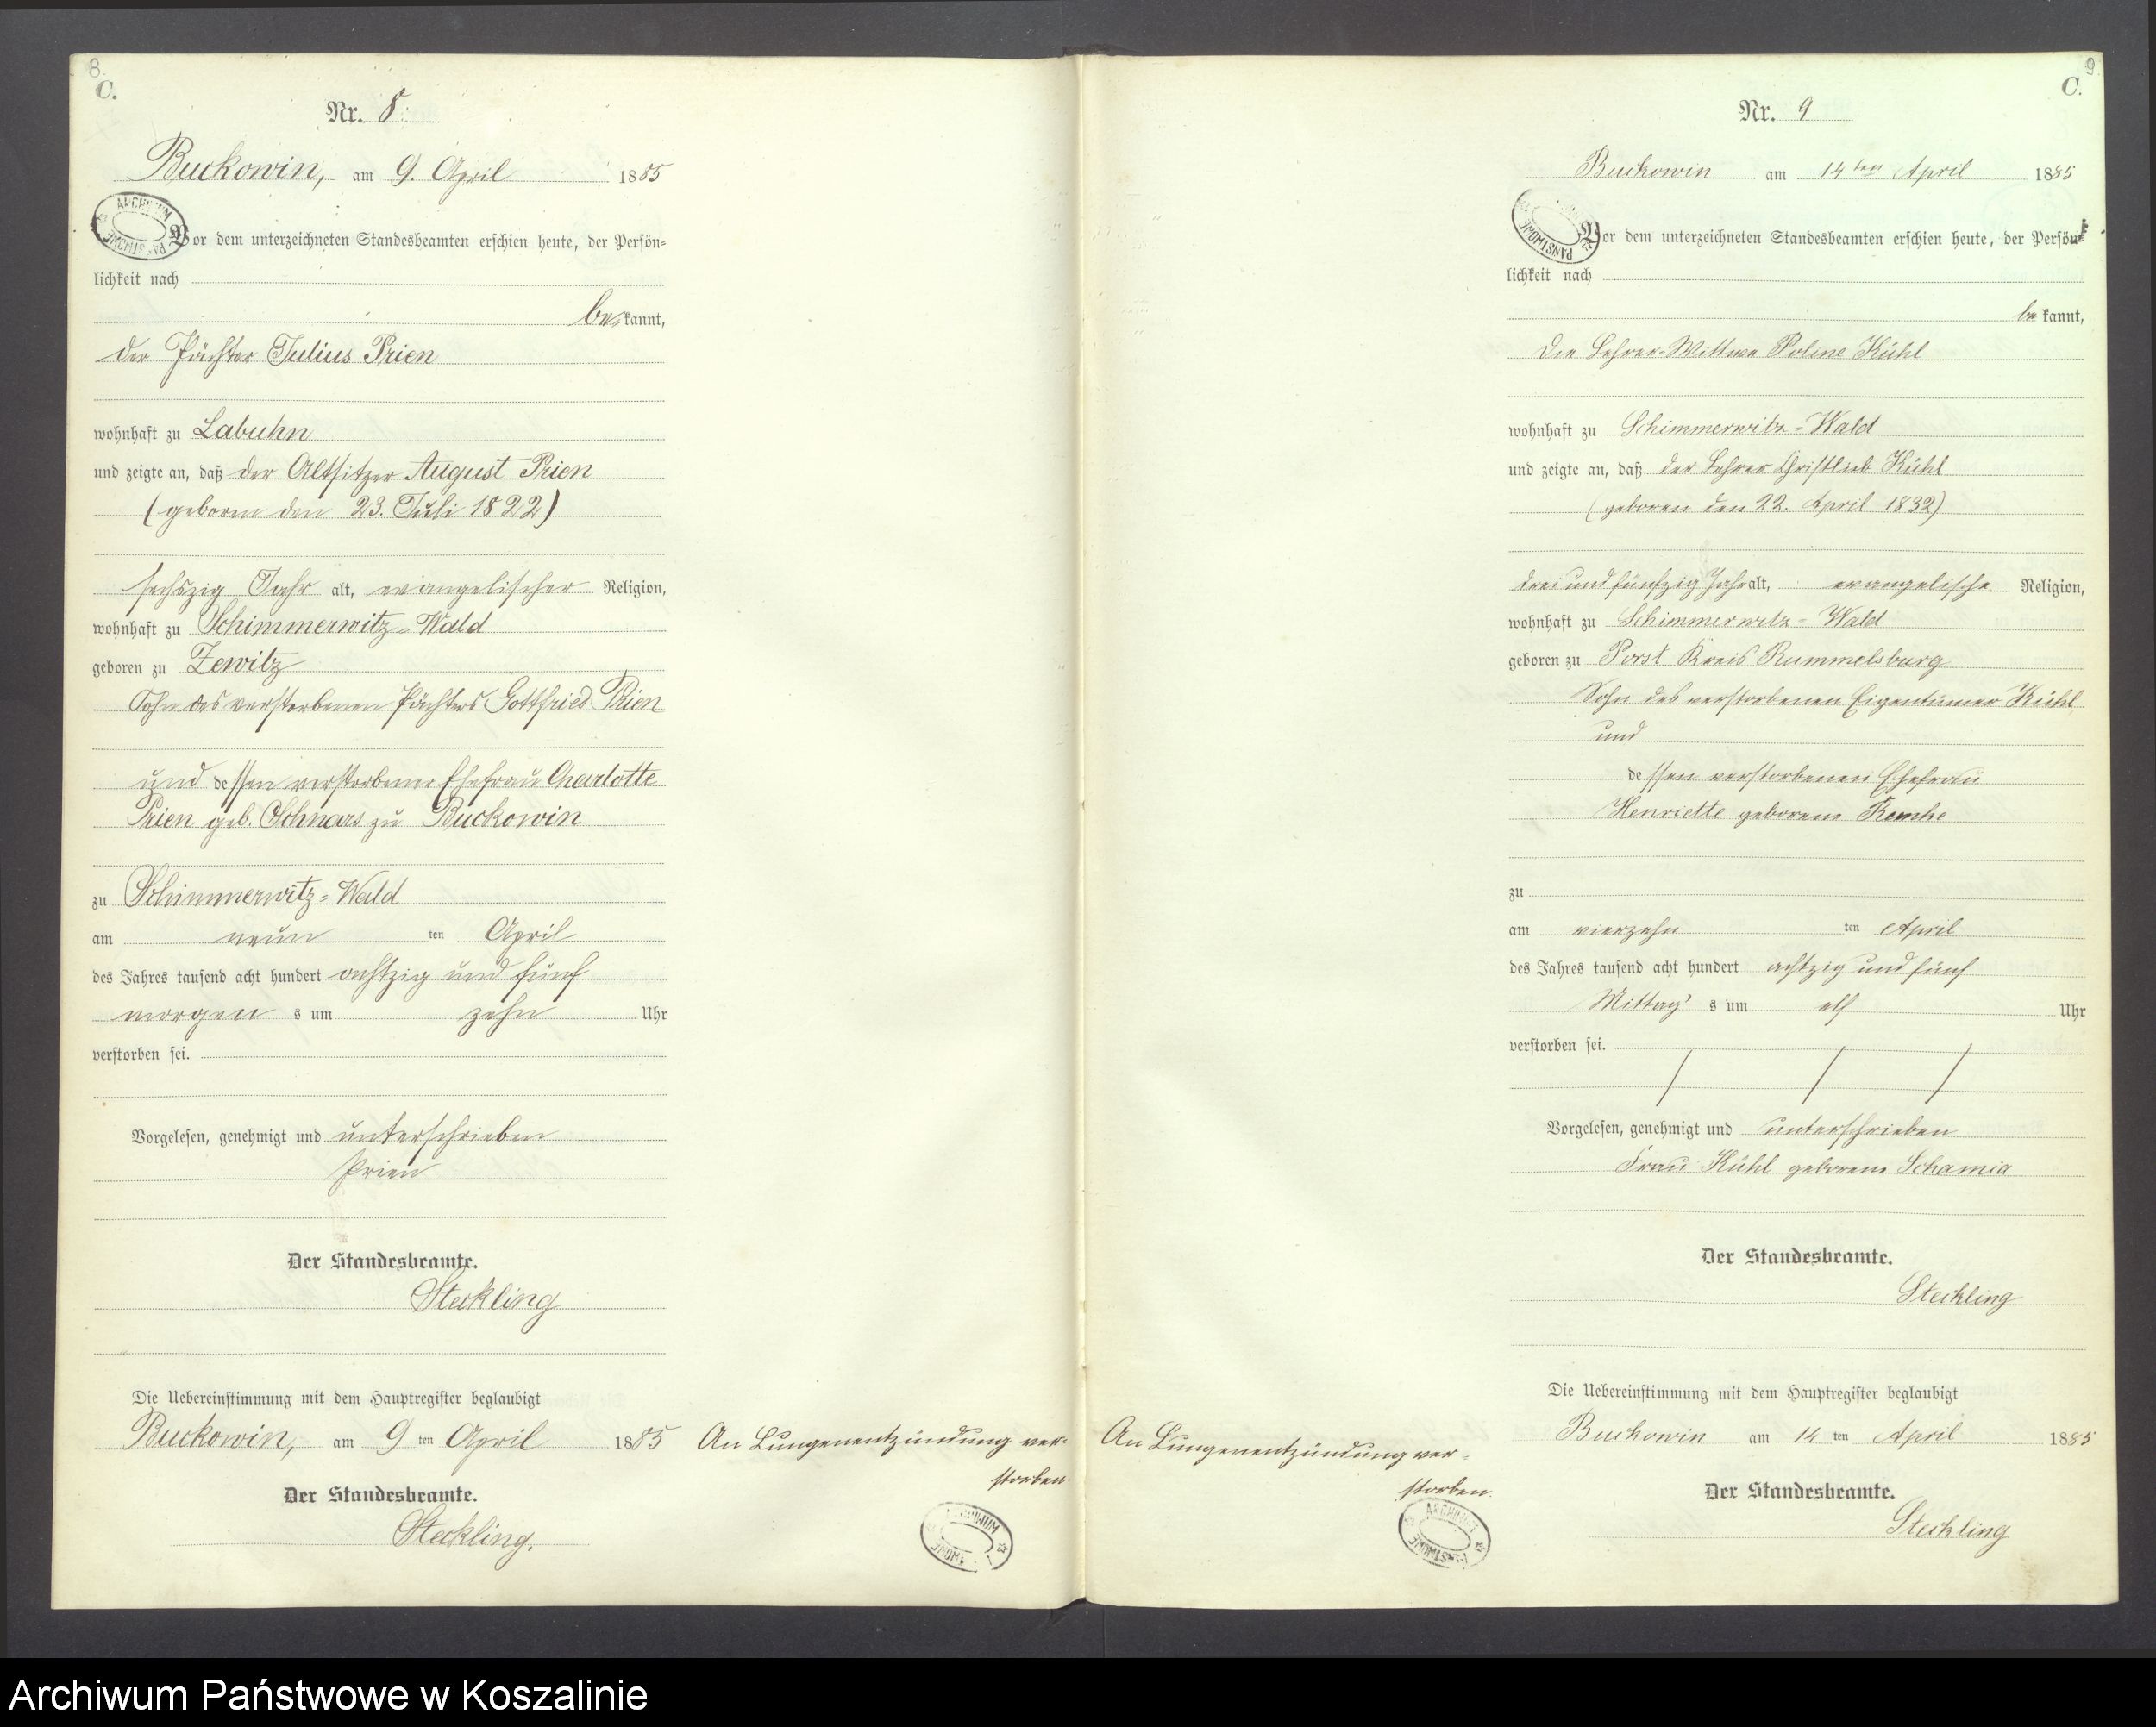 8.
C.
Nr. 8.
Buckowin, am 9. April 1885
ARCHIWUM
Vor dem unterzeichneten Standesbeamten erschien heute, der Persön=
lichkeit nach
be=kannt,
der Pächter Julius Prien
wohnhaft zu Labuhn
und zeigte an, daß der Altsitzer August Prien
(geboren den 23. Juli 1822)
sechszig Jahr alt, evangelischer Religion,
wohnhaft zu Schimmerwitz=Wald
geboren zu Zewitz
Sohn des verstorbenen Pächters Gottfried Prien
und dessen verstorbener Ehefrau Charlotte
Prien geb. Schnars zu Buckowin
zu Schimmerwitz=Wald
am neun ten April
des Jahres tausend acht hundert achtzig und fünf
morgen s um zehn Uhr
verstorben sei.
Vorgelesen, genehmigt und unterschrieben
Prien
Der Standesbeamte.
Steckling
Die Uebereinstimmung mit dem Hauptregister beglaubigt
Buckowin, am 9 ten April 1885
Der Standesbeamte.
Steckling.
An Lungenentzündung ver=
storben.
9.
C.
Nr. 9
Buckowin am 14ten April 1885
Vor dem unterzeichneten Standesbeamten erschien heute, der Persön=
lichkeit nach
be kannt,
die Lehrer-Wittwe Poline Kühl
wohnhaft zu Schimmerwitz=Wald
und zeigte an, daß der Lehrer Christlieb Kühl
(geboren den 22. April 1832)
drei und fünfzig Jahr alt, evangelische Religion,
wohnhaft zu Schimmerwitz=Wald
geboren zu Porst Kreis Rummelsburg
Sohn des verstorbenen Eigentümer Kühl
und
dessen verstorbenen Ehefrau
Henriette geborene
zu
am vierzehn ten April
des Jahres tausend acht hundert achtzig und fünf
Mittag's um elf Uhr
verstorben sei.
Vorgelesen, genehmigt und unterschrieben
Frau Kühl geborene Schamia
Der Standesbeamte.
Steckling
Die Uebereinstimmung mit dem Hauptregister beglaubigt
Buckowin am 14 ten April 1885
Der Standesbeamte.
Steckling
An Lungenentzündung ver=
storben.
Archiwum Państwowe w Koszalinie